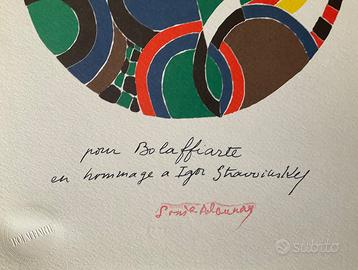 pour Bolaffiarte
en hommage a Igor Stravinsky
Sonia Delaunay
BOLAFFIARTE
subito